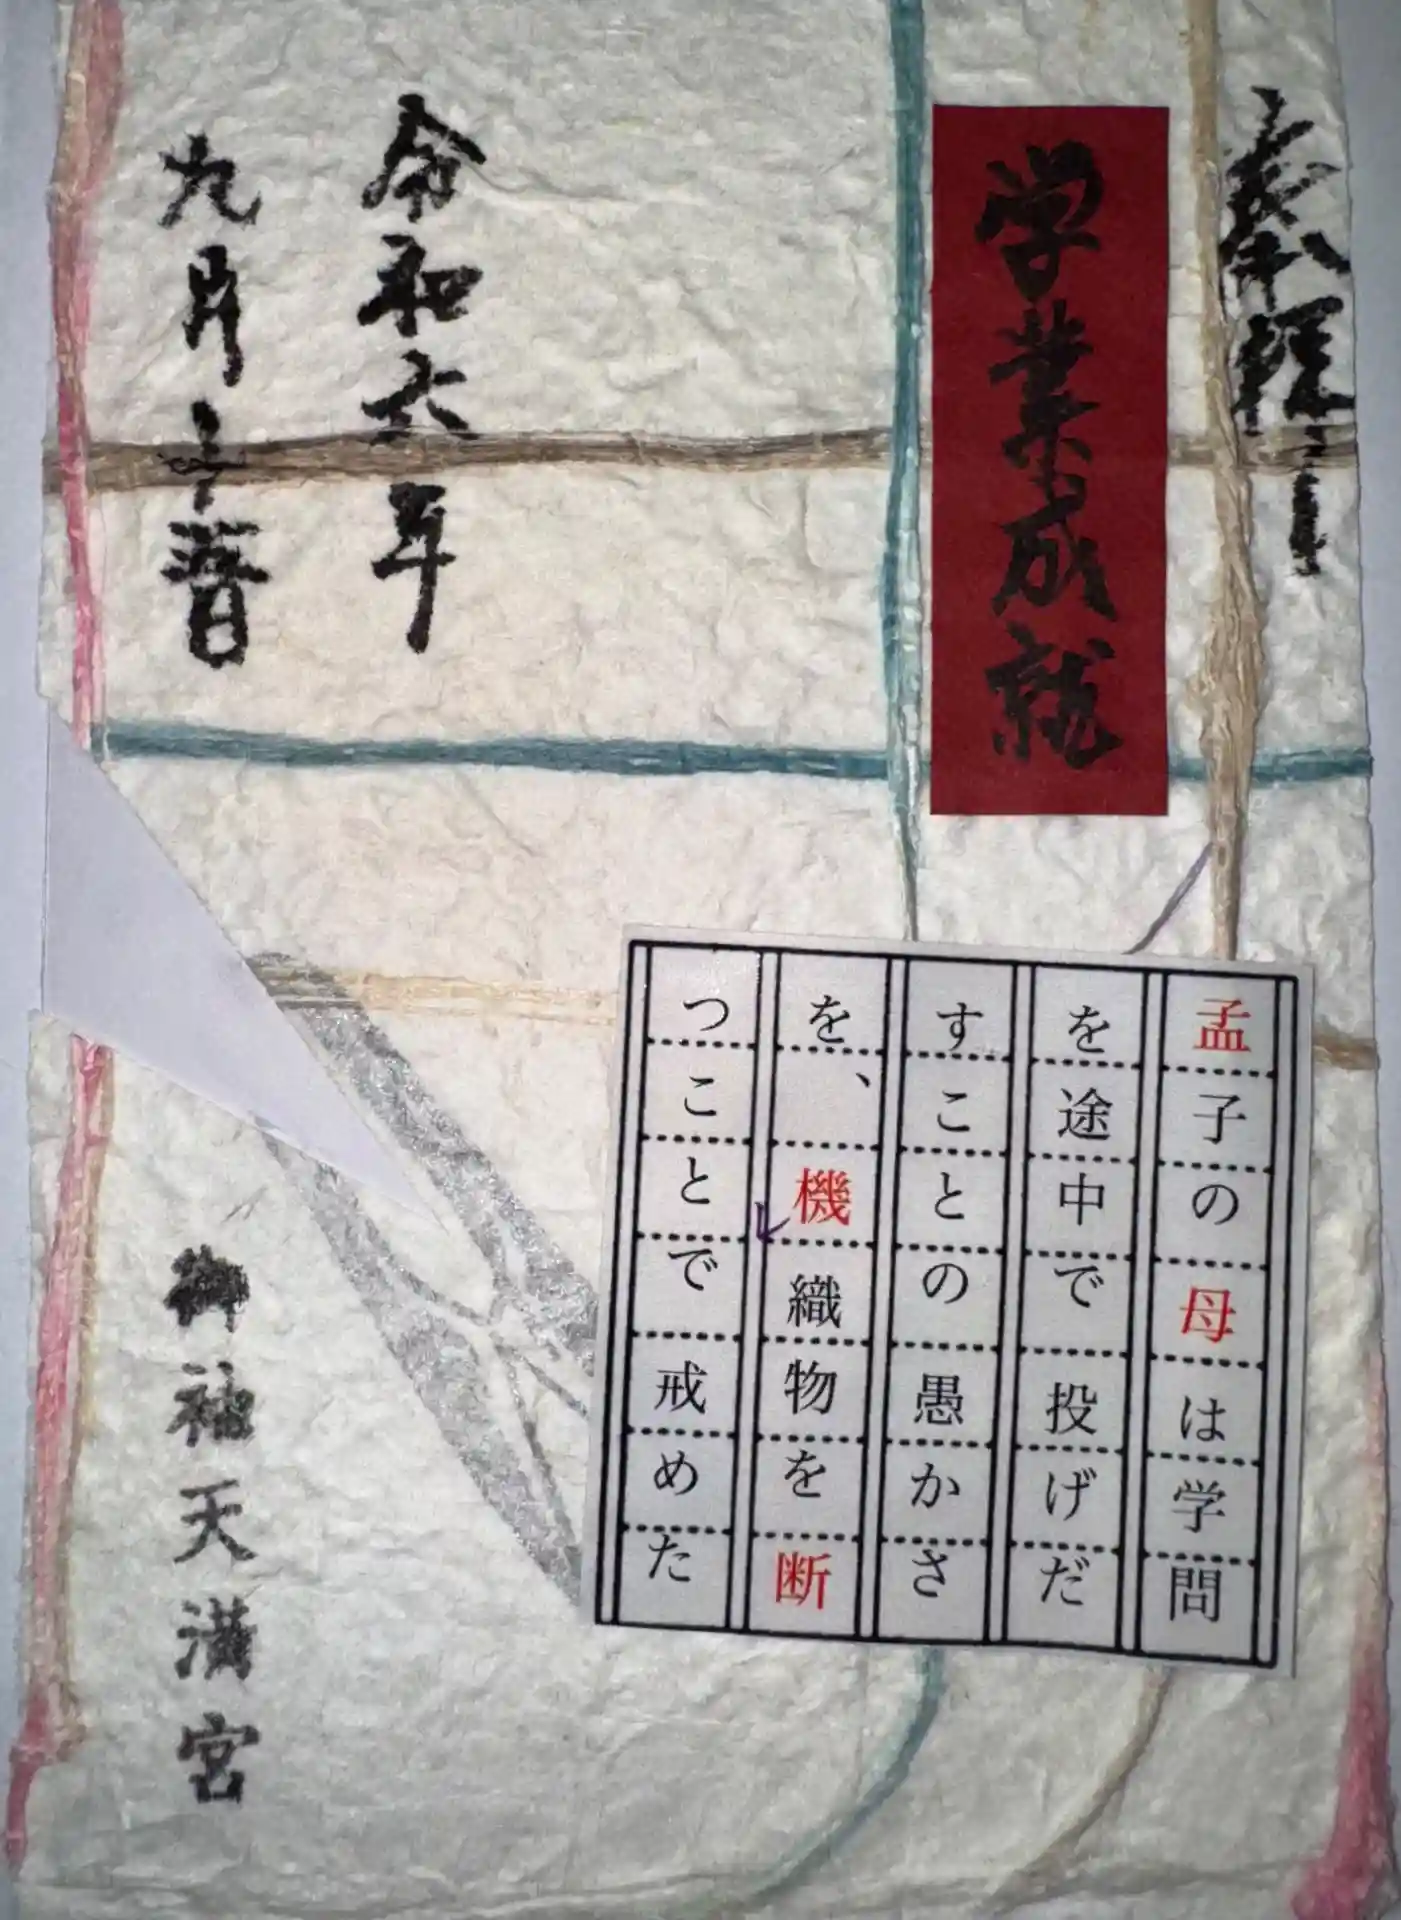 奉拝
学業成就
令和六年
九月十一日
御袖天満宮
孟子の母は学問
を途中で投げだ
すことの愚かさ
を、機織物を断
つことで戒めた